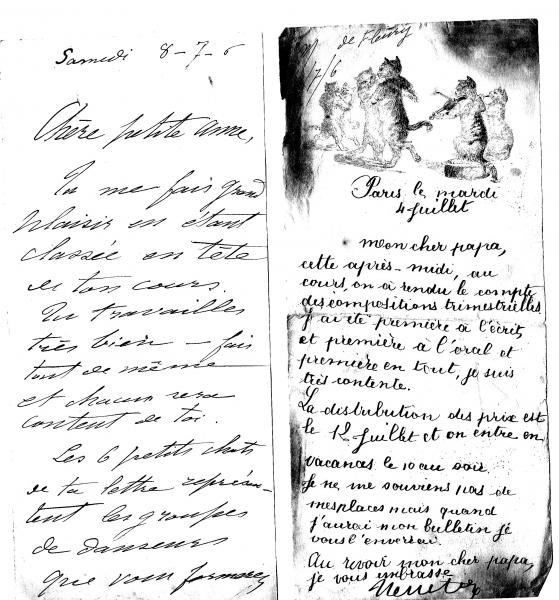 Samedi 8-7-6
Chère petite amie,
Tu me fais grand
plaisir en étant
classée en tête
de ton cours.
Tu travailles
très bien – fais
tout de même
et chacun sera
content de toi.
Les 6 petits chats
de ta lettre représen-
tent les groupes
de danseurs
que vous formerez
de Fleury
7/6
Paris le mardi
4 Juillet
mon cher papa,
cette après-midi, au
cours, on a rendu le compte
des compositions trimestrielles
J'ai été première à l'écrit,
et première à l'oral et
première en tout, je suis
très contente.
La distribution des prix est
le 12 Juillet et on entre en
vacances le 10 au soir.
Je ne me souviens pas de
mes places mais quand
j'aurai mon bulletin je
vous l'enverrai.
Au revoir mon cher papa,
je vous embrasse